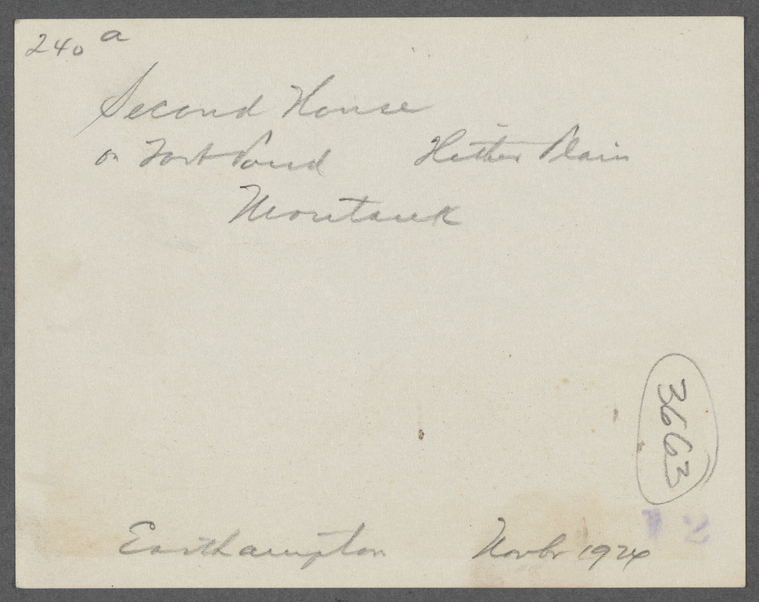 240 a
Second House
on Fort Pond Hither Plain
Montauk
3663
Easthampton Novbr 1924